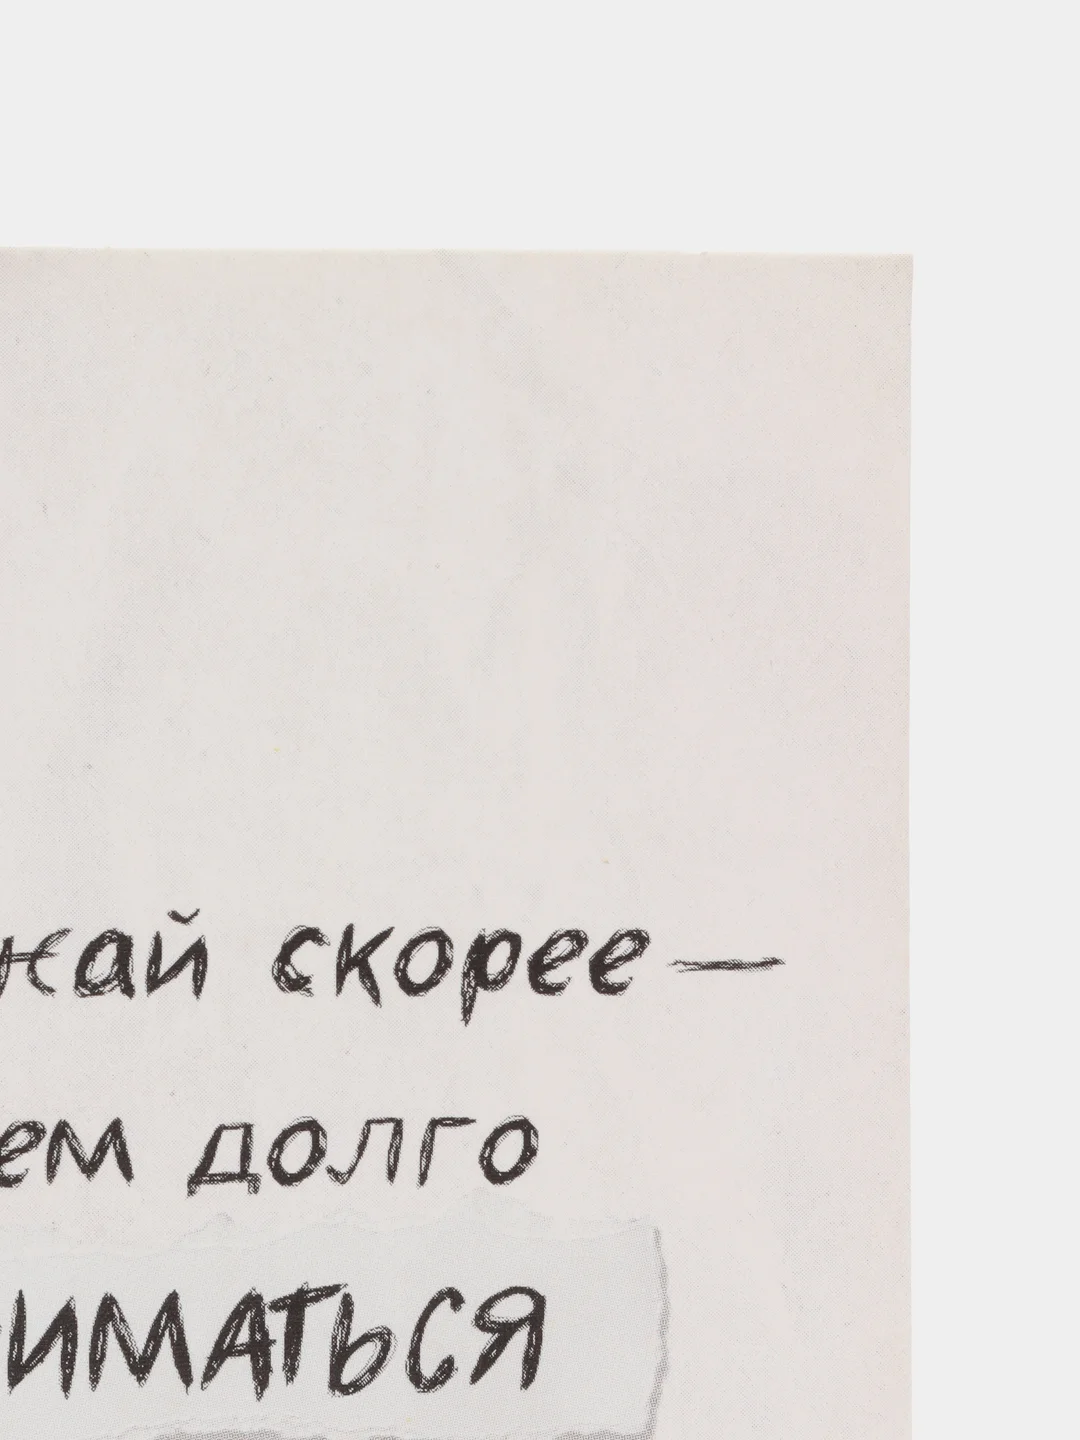 жай скорее —
ем долго
иматься